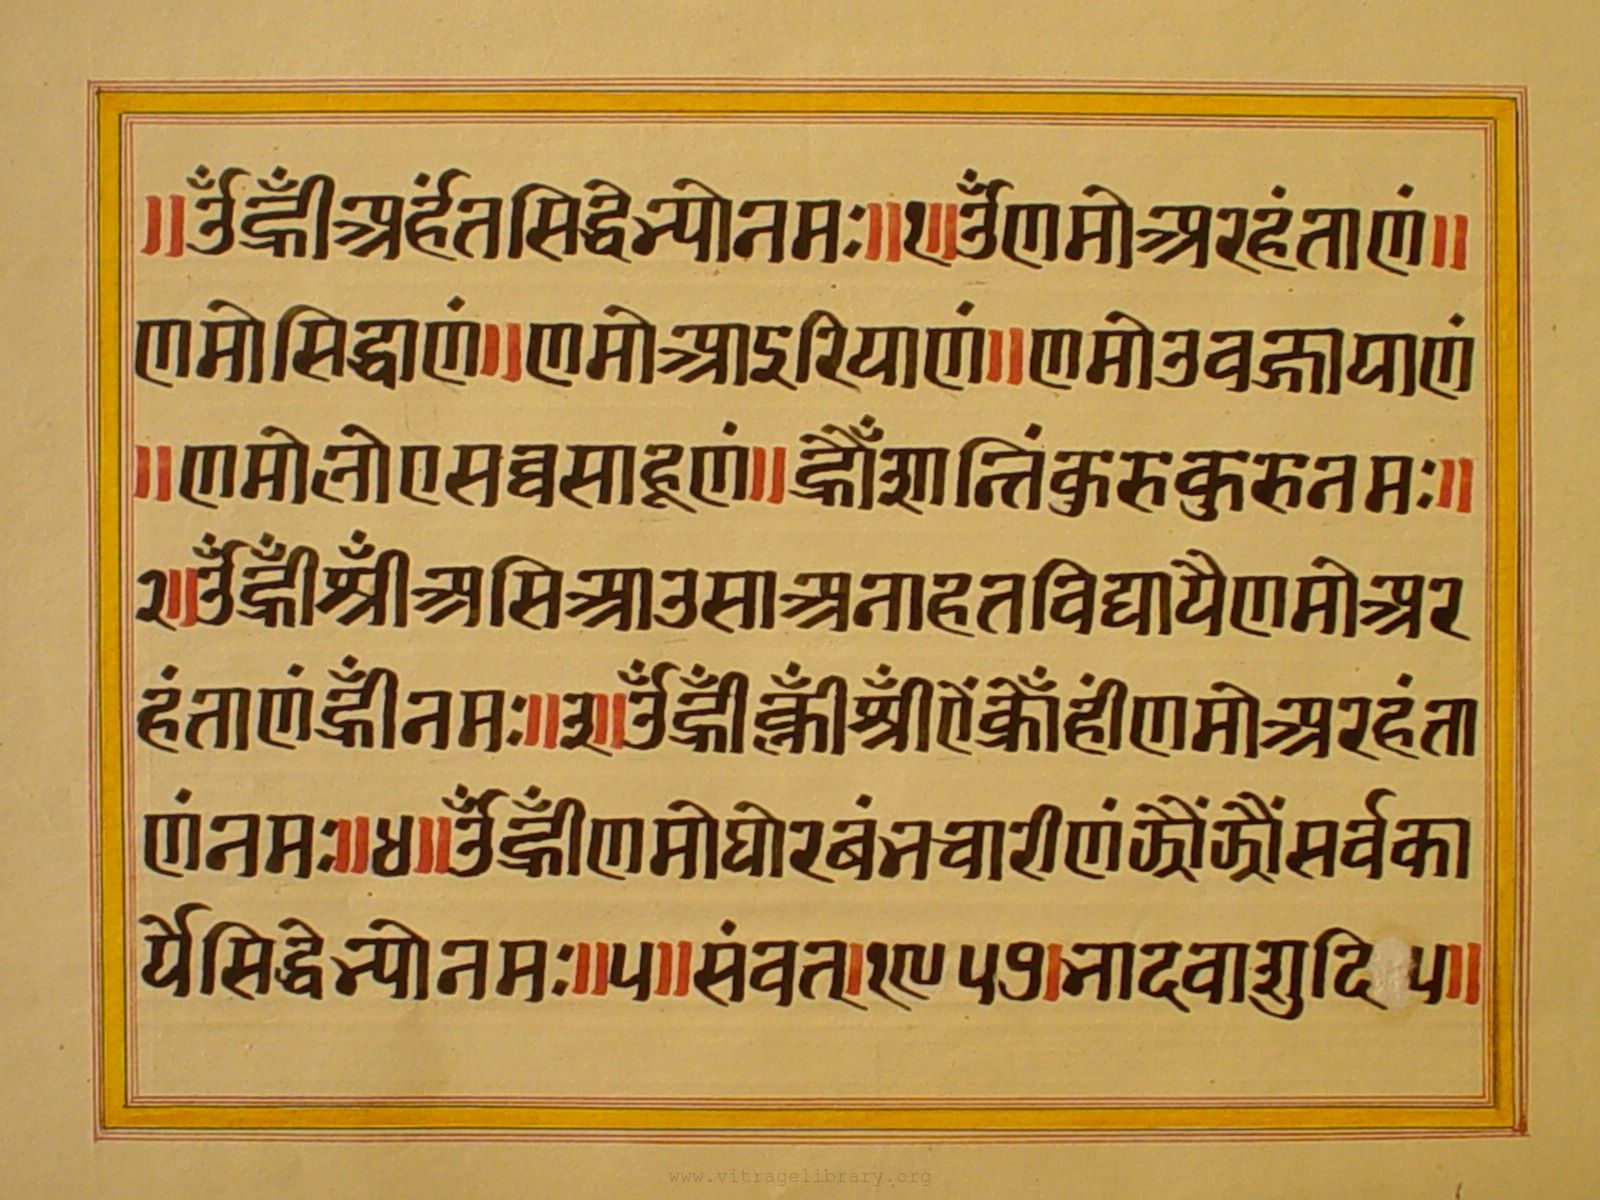 ॥ॐह्रीँअर्हंतसिद्धेभ्योनमः॥१॥ॐणमोअरहंताणं॥
णमोसिद्धाणं॥णमोआइरियाणं॥णमोउवज्झायाणं
॥णमोलोएसव्वसाहूणं॥ह्रौँशान्तिंकुरुकुरुनमः॥
२॥ॐह्रीँश्रीँअसिआउसाअनाहतविद्यायैणमोअर
हंताणंह्रीँनमः॥३॥ॐह्रीँक्लीँश्रीँऐंक्रोँहींणमोअरहंता
णंनमः॥४॥ॐह्रीँणमोघोरबंभचारीणंझ्रौंझ्रौंसर्वका
र्यैसिद्धेभ्योनमः॥५॥संवत्।१९५७।भादवाशुदि ५॥
www.vitragelibrary.org